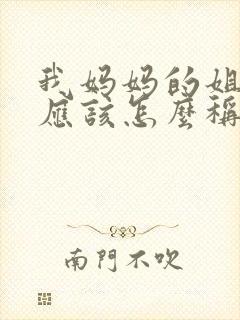 我妈妈的姐
應該怎麼稱
南門不吹